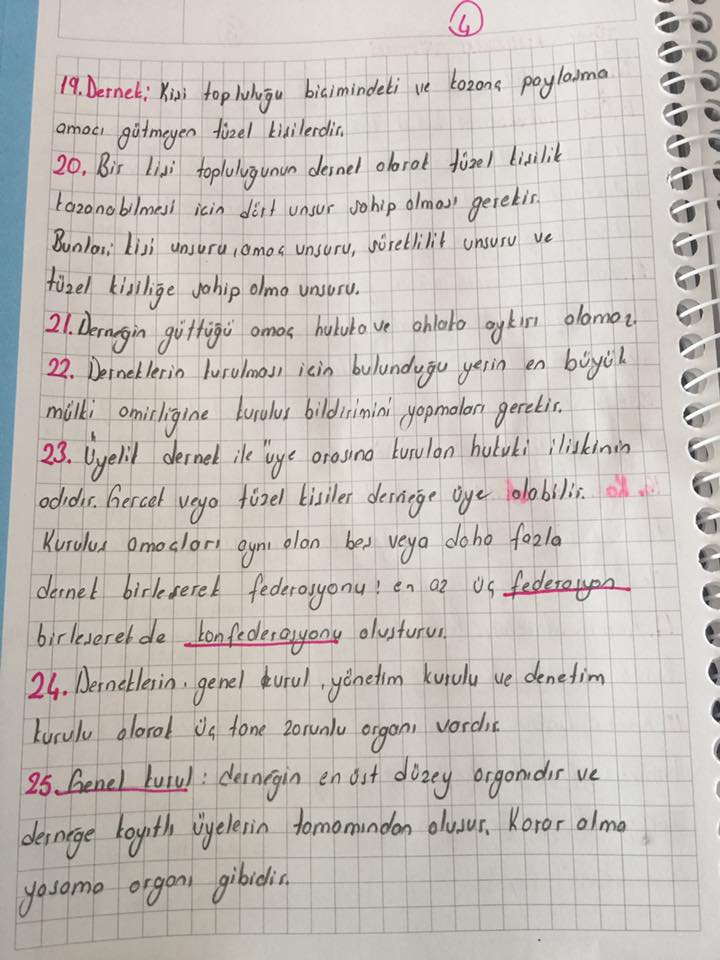 4
19. Dernek: Kişi topluluğu biçimindeki ve kazanç paylaşma
amacı gütmeyen tüzel kişilerdir.
20. Bir kişi topluluğunun dernek olarak tüzel kişilik
kazanabilmesi için dört unsur sahip olması gerekir.
Bunlar; kişi unsuru, amaç unsuru, süreklilik unsuru ve
tüzel kişiliğe sahip olma unsuru.
21. Derneğin güttüğü amaç hukuka ve ahlaka aykırı olamaz.
22. Derneklerin kurulması için bulunduğu yerin en büyük
mülki amirliğine kuruluş bildirimini yapmaları gerekir.
23. Üyelik dernek ile üye arasına kurulan hukuki ilişkinin
adıdır. Gerçek veya tüzel kişiler derneğe üye olabilir.
Kuruluş amaçları aynı olan beş veya daha fazla
dernek birleşerek federasyonu; en az üç federasyon
birleşerek de konfederasyonu oluşturur.
24. Derneklerin, genel kurul, yönetim kurulu ve denetim
kurulu olarak üç tane zorunlu organı vardır.
25. Genel kurul: derneğin en üst düzey organıdır ve
derneğe kayıtlı üyelerin tamamından oluşur. Karar alma
yasama organı gibidir.